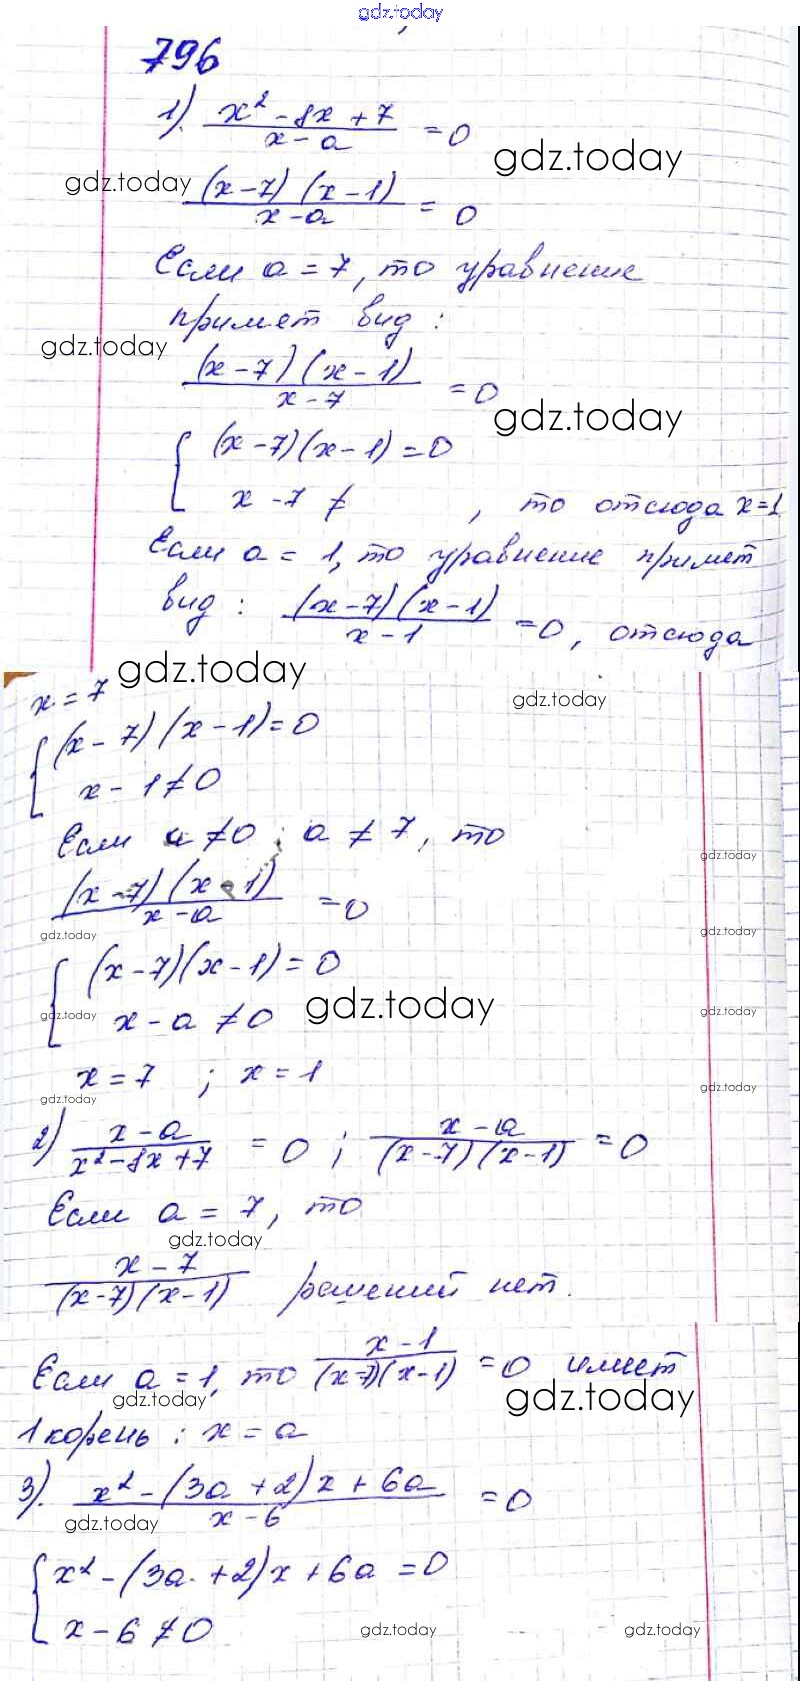 gdz.today
796
1). (x² - 8x + 7)/(x - a) = 0
gdz.today
gdz.today
((x-7)(x-1))/(x-a) = 0
Если a = 7, то уравнение
примет вид:
gdz.today
((x-7)(x-1))/(x-7) = 0
gdz.today
{ (x-7)(x-1) = 0
x - 7 ≠ , то отсюда x=1
Если a = 1, то уравнение примет
вид: ((x-7)(x-1))/(x-1) = 0, отсюда
gdz.today
x = 7
gdz.today
{ (x-7)(x-1) = 0
x - 1 ≠ 0
Если a ≠ 0; a ≠ 7, то
gdz.today
((x-7)(x-1))/(x-a) = 0
gdz.today
gdz.today
{ (x-7)(x-1) = 0
gdz.today
gdz.today
gdz.today
x - a ≠ 0
x = 7 ; x = 1
gdz.today
gdz.today
2) (x-a)/(x²-8x+7) = 0 ; (x-a)/((x-7)(x-1)) = 0
Если a = 7, то
gdz.today
(x-7)/((x-7)(x-1)) решений нет.
Если a = 1, то (x-1)/((x-7)(x-1)) = 0 имеет
gdz.today
gdz.today
1 корень: x = a
3). (x² - (3a + 2)x + 6a)/(x - 6) = 0
gdz.today
{ x² - (3a + 2)x + 6a = 0
x - 6 ≠ 0
gdz.today
gdz.today